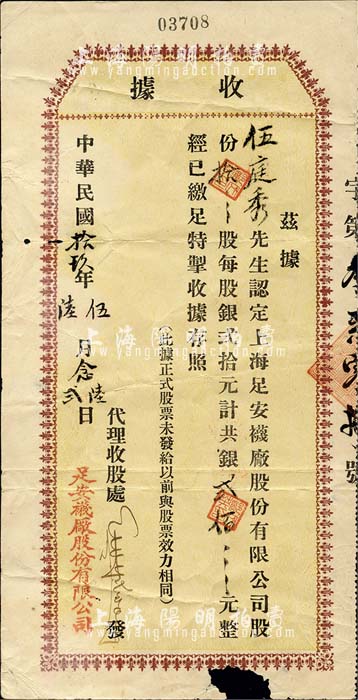 03708
上海陽明拍賣
www.yangmingauction.com
收據
字第號
茲據
伍庭秀先生認定上海足安襪廠股份有限公司股
份拾股每股銀弍拾元計共銀弍佰元整
經已繳足特掣收據存照
(此據正式股票未發給以前與股票效力相同)
中華民國拾玖年伍陸月念陸弍日
代理收股處發
足安襪廠股份有限公司
上海陽明拍賣
www.yangmingauction.com
上海陽明拍賣
www.yangmingauction.com